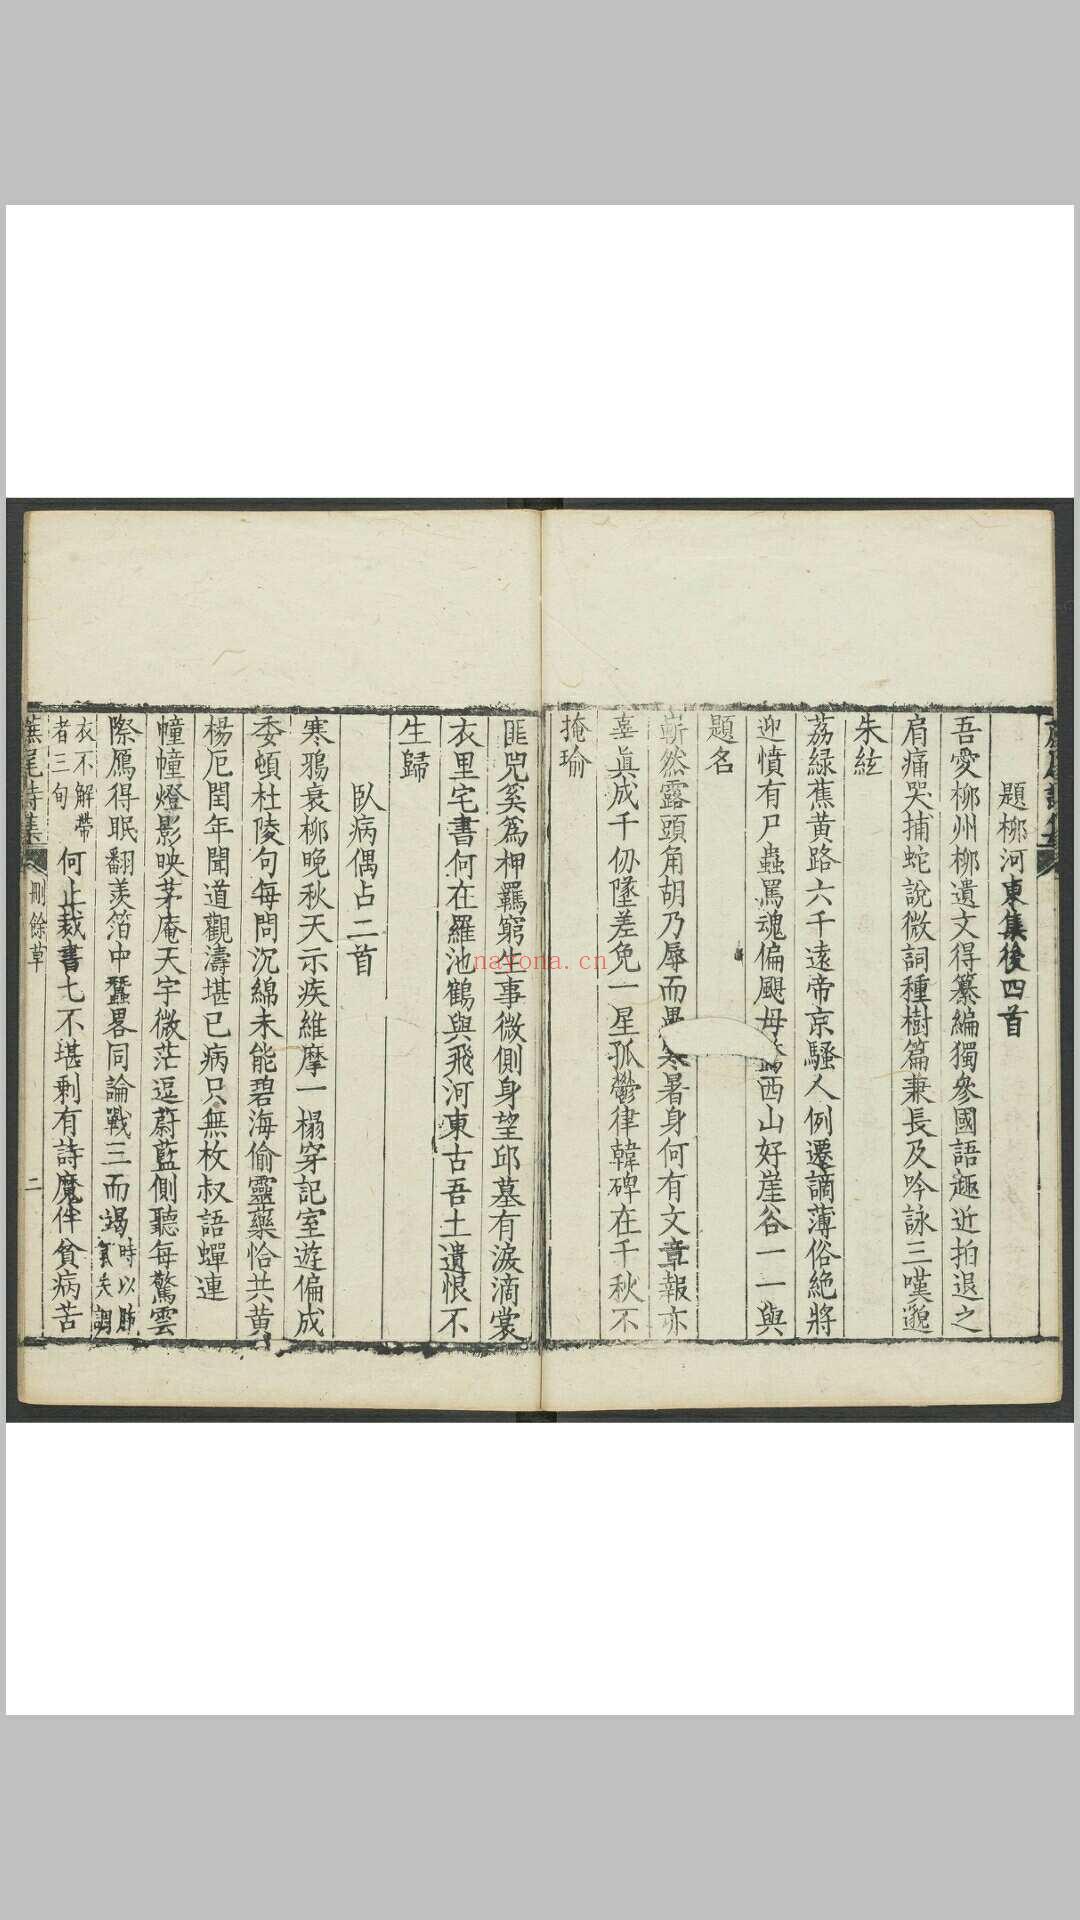 題柳河東集後四首
吾愛柳州柳遺文得纂編獨參國語趣近拍退之
肩痛哭捕蛇說微詞種樹篇兼長及吟詠三嘆邈
朱絃
荔綠蕉黄路六千遠帝京騷人例遷謫薄俗絶將
迎憤有尸蟲罵魂偏颶母 西山好崖谷一一與
題名
嶄然露頭角胡乃辱而 寒暑身何有文章報亦
辜眞成千仞墜差免一星孤鬱律韓碑在千秋不
掩瑜
匪兕奚爲柙羈窮生事微側身望邱墓有淚滴裳
衣里宅書何在羅池鶴與飛河東古吾土遺恨不
生歸
臥病偶占二首
寒鴉衰柳晚秋天示疾維摩一榻穿記室遊偏成
委頓杜陵句每問沉綿未能碧海偷靈藥恰共黄
楊厄閏年聞道觀濤堪已病只無枚叔語蟬連
幢幢燈影映茅庵天宇微茫逗蔚藍側聽每驚雲
際鴈得眠翻羨箔中蠶畧同論戰三而竭時以肺氣失調
衣不解帶者三旬何止裁書七不堪剩有詩魔伴貧病苦
蕉尾詩集 刪餘草 二
nayona.cn